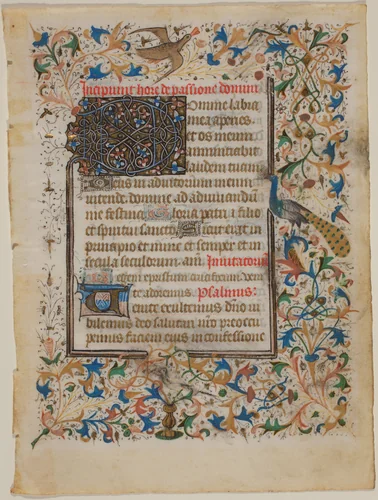 Incipiunt hore de passione domini
Domine labia
mea aperies
et os meum
annuntiabit
laudem tuam
Deus in adiutorium meum
intende domine ad adiuvandū
me festina Gloria patri et filio
et spiritui sancto Sicut erat in
principio et nunc et semper et in
secula seculorum. am. Invitatoriū
Christum
venite adoremus. Psalmus.
Venite exultemus dn̄o iu
bilemus deo salutari nr̄o preoccu
pemus faciem eius in confessione